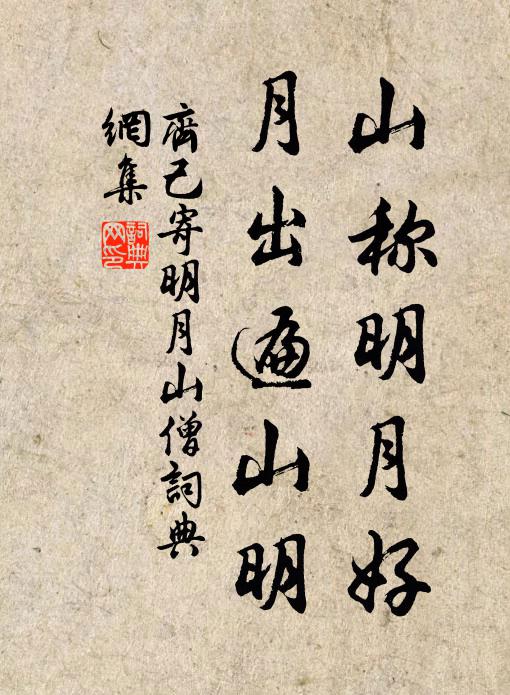 山称明月好
月出遍山明
齊己寄明月山僧詞典
網集
詞典
网印